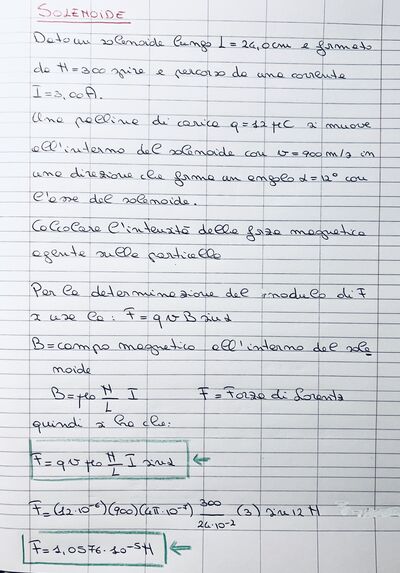 SOLENOIDE
Dato un solenoide lungo L = 24,0 cm e formato
da N = 300 spire e percorso da una corrente
I = 3,00 A.
Una pallina di carica q = 12 μC si muove
all'interno del solenoide con v = 900 m/s in
una direzione che forma un angolo α = 12° con
l'asse del solenoide.
Calcolare l'intensità della forza magnetica
agente sulla particella
Per la determinazione del modulo di F
si usa la: F = q v B sin α
B = campo magnetico all'interno del sole
noide
B = μ0 N/L I F = Forza di Lorentz
quindi si ha che:
F = q v μ0 N/L I sin α
F = (12·10⁻⁶)(900)(4π·10⁻⁷) 300/24·10⁻² (3) sin 12 N
F = 1,0576·10⁻⁵ N